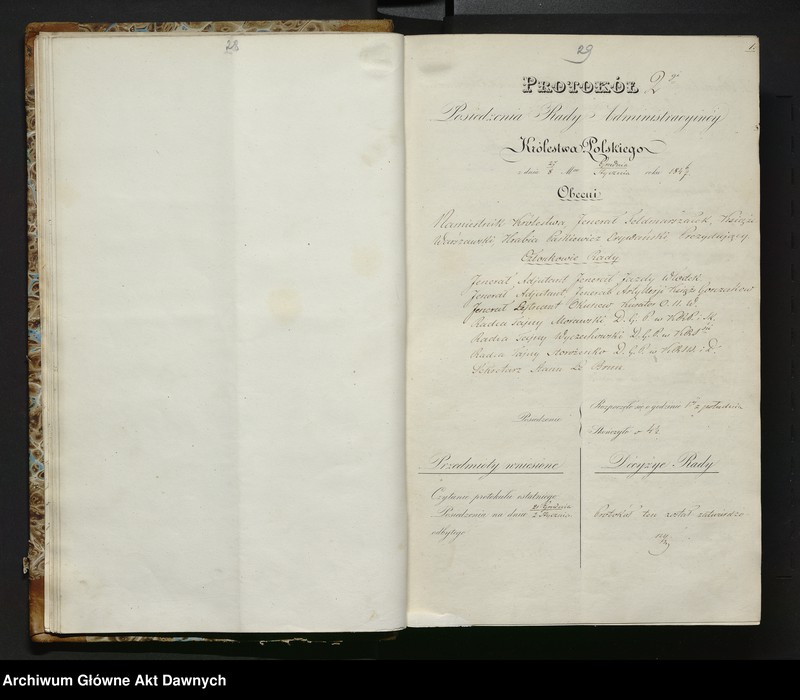 28
29
PROTOKÓŁ 2
Posiedzenia Rady Administracyinéy
Królestwa Polskiego
z dnia 27/8 Mca Grudnia/Stycznia roku 184 6/7
Obecni
Namiestnik Królestwa, Jenerał Feldmarszałek, Książe
Warszawski, Hrabia Paskiewicz Erywański Prezydujący
Członkowie Rady
Jenerał Adjutant Jenerał Jazdy
Jenerał Adjutant Jenerał Artyllerji Książe Gorczakow
Jenerał Lejtnant Okuniew Kurator O. N. W.
Radca Tajny Morawski D. G. P. w K. P. i S.
Radca Tajny Wyczechowski D. G. P. w
Radca Tajny Storożenko D. G. P. w i D.
Sekretarz Stanu Le Brun
Posiedzenie
Rozpoczęło się o godzinie 1 z południa
Skończyło o 4½
Przedmioty wniesione
Decyzye Rady
Czytanie protokułu ostatniego
Posiedzenia na dniu 21 Grudnia/2 Stycznia
odbytego
Protokół ten został zatwierdzo-
ny
Archiwum Główne Akt Dawnych